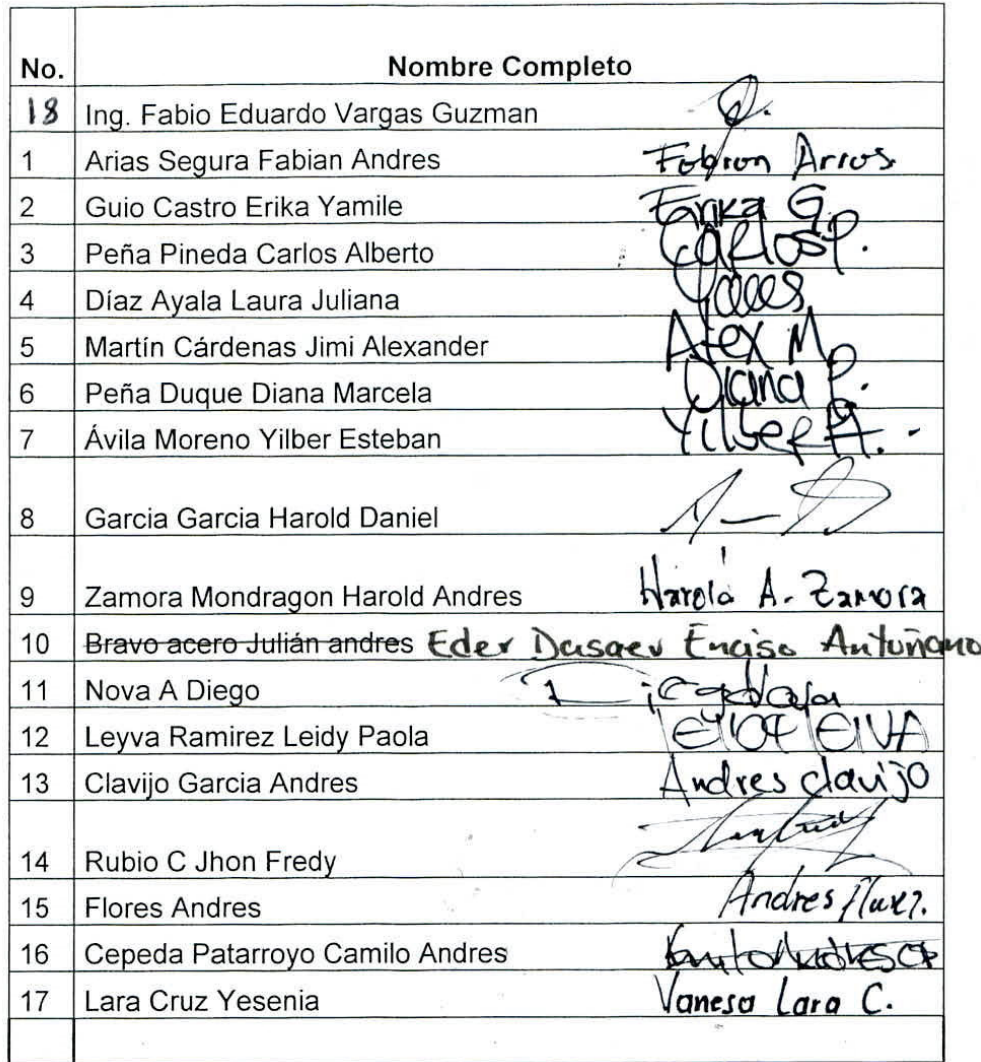 No. Nombre Completo
18 Ing. Fabio Eduardo Vargas Guzman
1 Arias Segura Fabian Andres Fabian Arias
2 Guio Castro Erika Yamile Erika G.
3 Peña Pineda Carlos Alberto Carlos P.
4 Díaz Ayala Laura Juliana
5 Martín Cárdenas Jimi Alexander Alex M.
6 Peña Duque Diana Marcela Diana P.
7 Ávila Moreno Yilber Esteban Yilber A.
8 Garcia Garcia Harold Daniel
9 Zamora Mondragon Harold Andres Harold A. Zamora
10 Bravo acero Julián andres Eder Dasaev Enciso Antuñano
11 Nova A Diego
12 Leyva Ramirez Leidy Paola
13 Clavijo Garcia Andres Andres clavijo
14 Rubio C Jhon Fredy
15 Flores Andres Andres
16 Cepeda Patarroyo Camilo Andres
17 Lara Cruz Yesenia Vanesa Lara C.